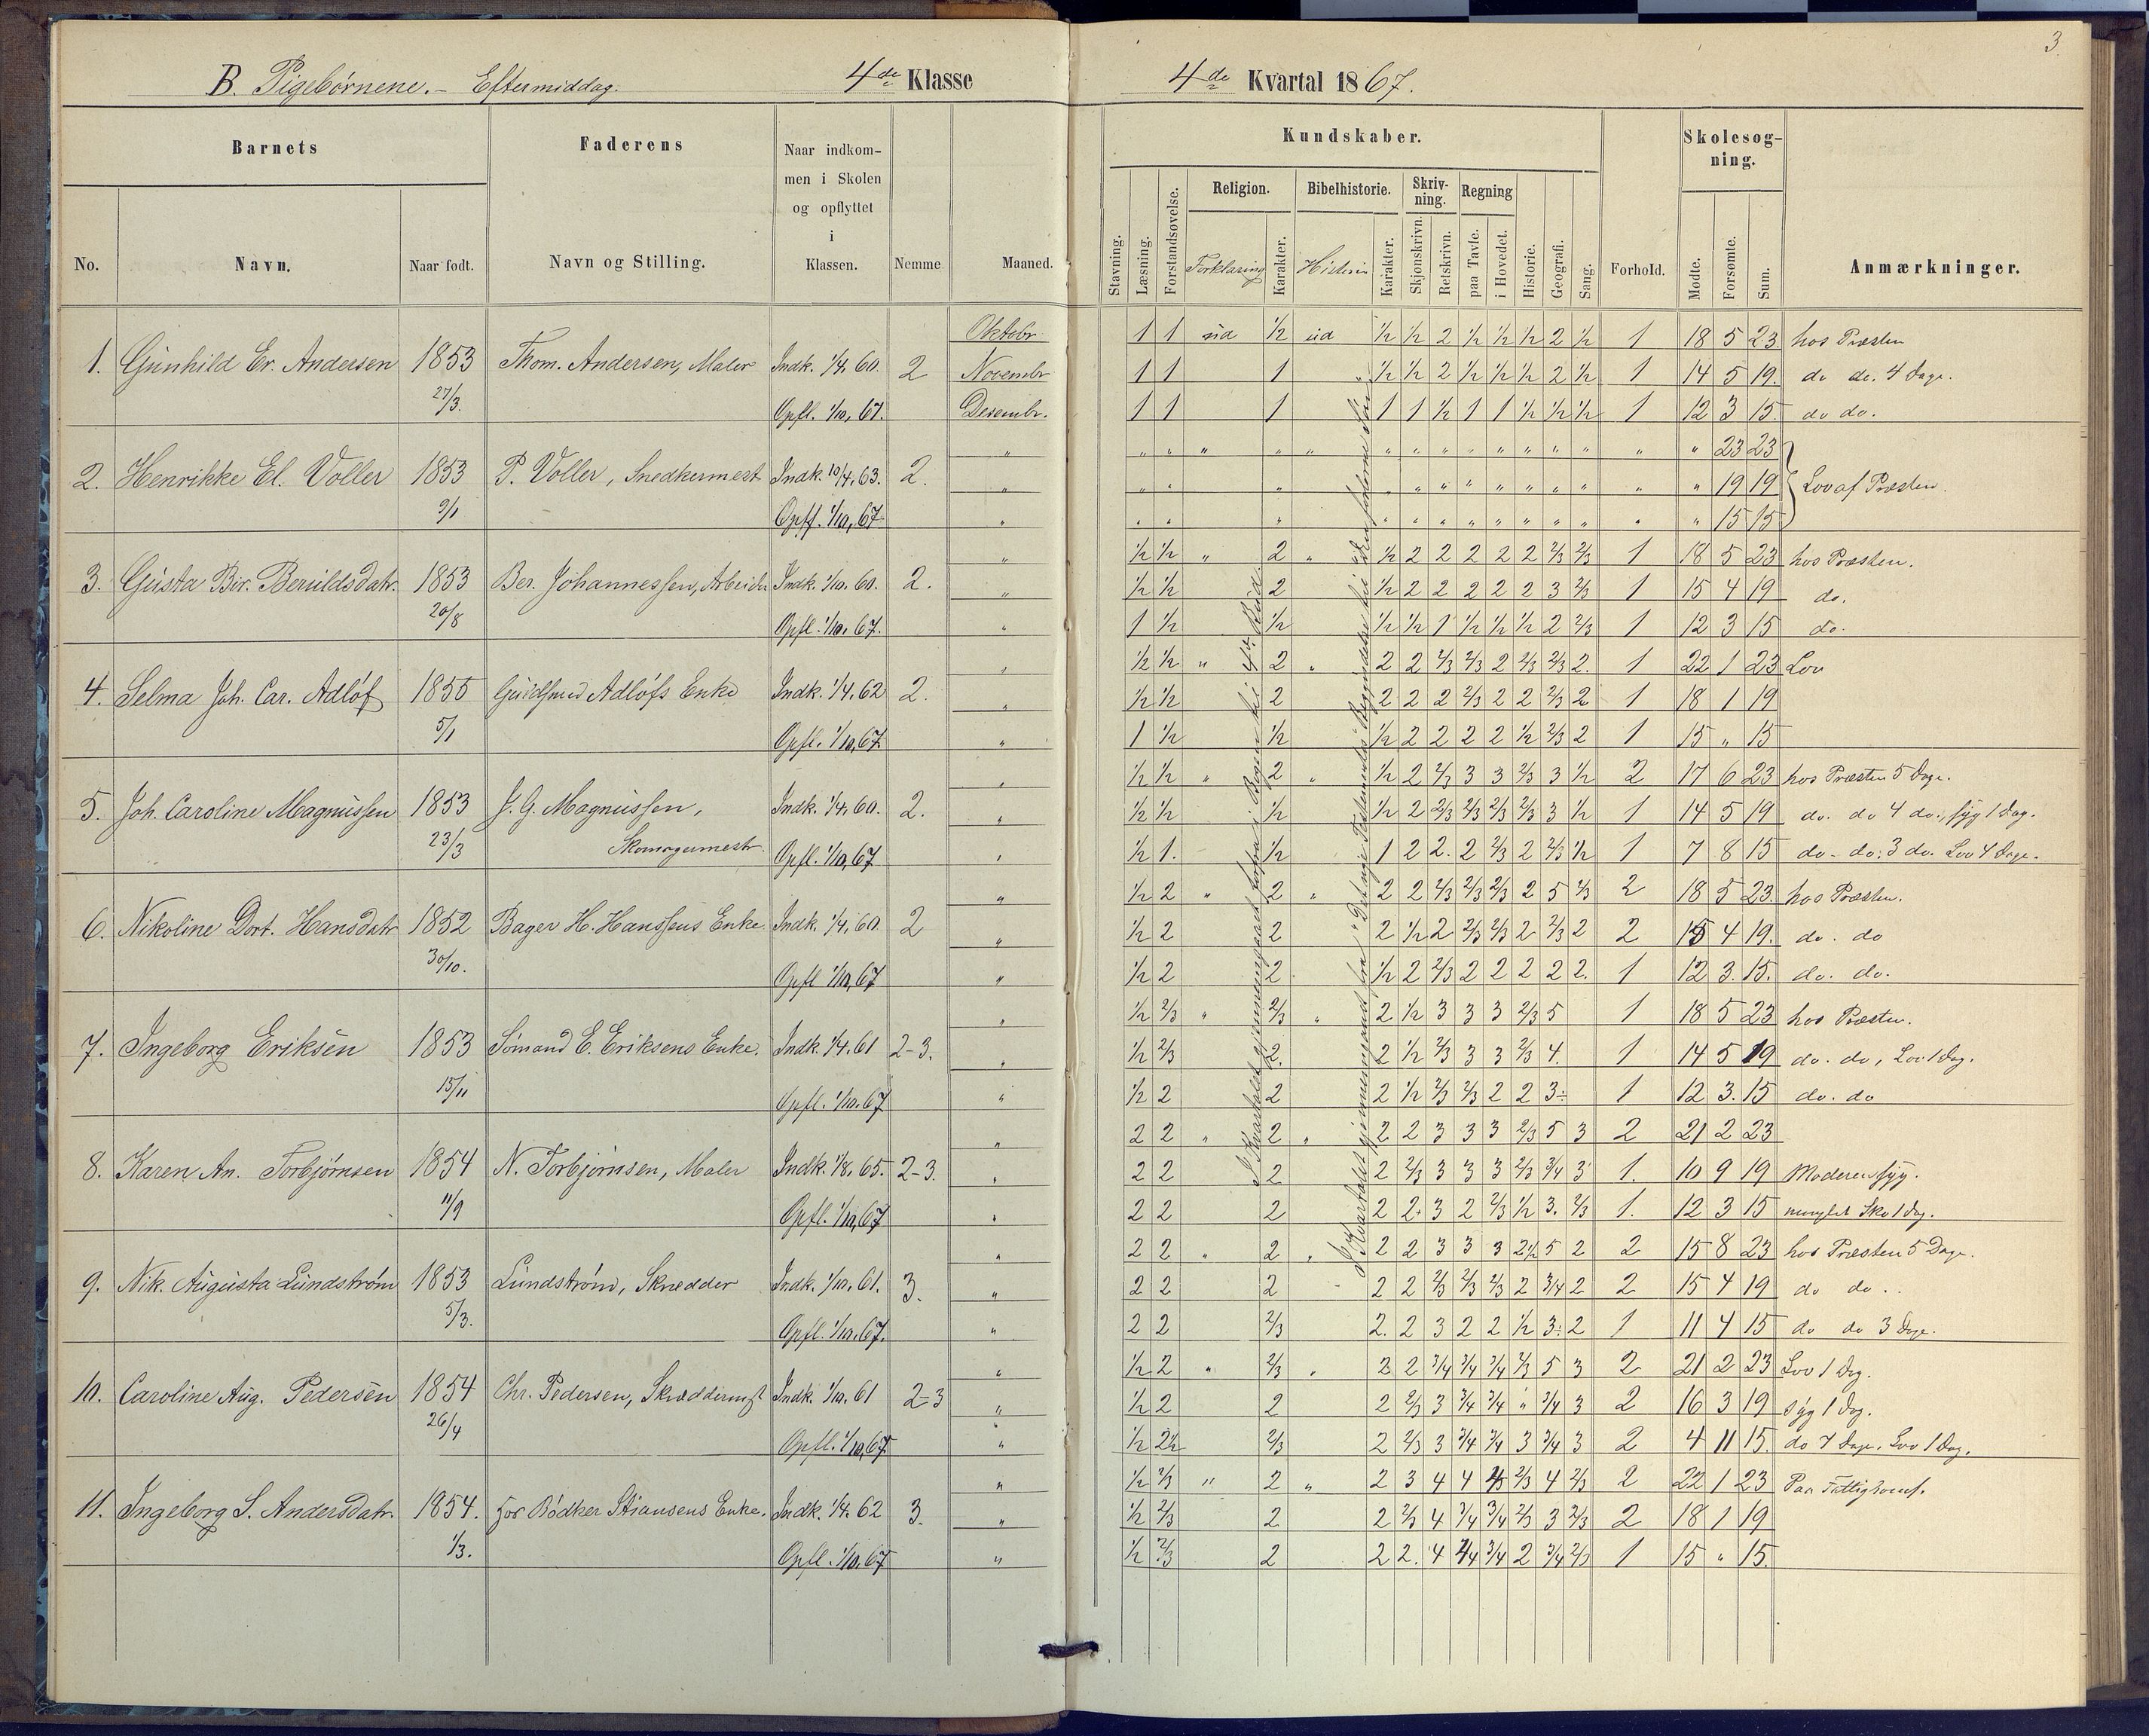 3.
B. Pigebørnene. - Eftermiddag. 4de Klasse
4de Kvartal 1867.
Barnets
Faderens
Naar indkom-
men i Skolen
og opflyttet
i
Klassen.
No.
Navn.
Naar født.
Navn og Stilling.
Nemme
Maaned.
Kundskaber.
Skolesøg-
ning.
Religion.
Bibelhistorie.
Skriv-
ning.
Regning
Stavning.
Læsning.
Forstandsøvelse.
Forklaring
Karakter.
Historie
Karakter.
Skjønskrivn.
Retskrivn.
paa Tavle.
i Hovedet.
Historie.
Geografi.
Sang.
Forhold.
Mødte.
Forsømte.
Sum.
Anmærkninger.
1. Gunhild Er. Andersen 1853 27/3. Thom. Andersen, Maler Indk. 1/4, 60. Opfl. 1/10, 67. 2
Oktobr 1 1 ud 1/2 ud 1/2 1/2 2 1/2 1/2 1/2 2 1/2 1 18 5 23 hos Præsten
Novembr 1 1 1 1/2 1/2 2 1/2 1/2 1/2 2 1/2 1 14 5 19. do do. 4 Dage.
Desembr. 1 1 1 1 1 1/2 1 1 1/2 1/2 1/2 1 12 3 15. do do.
2. Henrikke El. Voller 1853 9/1 P. Voller, Snedkermest Indk. 10/4, 63. Opfl. 1/10, 67 2.
" 23 23
" 19 19 Lov af Præsten.
" 15 15
3. Gusta Ber. Beruldsdatr. 1853 20/8 Ber. Johannessen, Arbeider Indk. 1/10. 60. Opfl. 1/10. 67. 2.
1/2 1/2 " 2 " 1/2 2 2 2 2 2 2/3 2/3 1 18 5 23 hos Præsten.
1/2 1/2 2 1/2 2 2 2 2 2 3 2/3 1 15 4 19 do.
1 1/2 1/2 1/2 1/2 1 1/2 1/2 1/2 2 2/3 1 12 3 15 do.
4. Selma Joh. Car. Adløf 1855 5/1 Guldsmed Adløfs Enke Indk. 1/4. 62 Opfl. 1/10, 67. 2.
1/2 1/2 " 2 " 2 2 2/3 2/3 2 2/3 2/3 2. 1 22 1 23 Lov
1/2 1/2 2 2 2 2 2/3 2 2 2/3 2 1 18 1 19
1 1/2 1/2 1/2 2 2 2 2 1/2 2/3 2 1 15 " 15
5. Joh. Caroline Magnussen 1853 23/3 J. G. Magnussen, Skomagermestr. Indk. 1/4, 60. Opfl. 1/10, 67 2.
1/2 1/2 " 2 " 1/2 2 2/3 3 3 2/3 3 1/2 2 17 6 23 hos Præsten 5 Dage.
1/2 1/2 1/2 1/2 2 2/3 2/3 2/3 2/3 3 1/2 1 14 5 19 do. do 4 do., syg 1 Dag.
1/2 1. 1/2 1 2 2. 2 2/3 2 2/3 1/2 1 7 8 15 do - do: 3 do. Lov 4 Dage.
6. Nikoline Dort. Hansdatr 1852 30/10. Bager H. Hanssens Enke. Indk. 1/4, 60. Opfl 1/10, 67 2
1/2 2 " 2 " 2 2 2/3 2/3 2/3 2 5 2/3 2 18 5 23. hos Præsten.
1/2 2 2 2 1/2 2 2/3 2/3 2 2/3 2 2 15 4 19. do. do
1/2 2 2 1/2 2 2/3 2 2 2 2 2. 1 12 3. 15. do. do.
7. Ingeborg Eriksen 1853 15/11 Sømand E. Eriksens Enke. Indk. 1/4. 61 Opfl. 1/10. 67 2-3.
1/2 2/3 " 2/3 " 2 1/2 3 3 3 2/3 5 1 18 5 23 hos Præsten.
1/2 2/3 2. 2 1/2 2/3 3 3 2/3 4. 1 14 5 19 do. do, Lov 1 Dag.
1/2 2 2 2 1/2 2/3 2/3 2 2 3÷ 1 12 3. 15 do. do
8. Karen An. Torbjørnsen 1854 11/9 N. Torbjørnsen, Maler Indk. 1/8. 65. Opfl. 1/10, 67 2-3.
2 2 " 2 " 2 2 3 3 3 2/3 5 3 2 21 2 23
2 2 2 2 2/3 3 3 3 2/3 3/4 3 1. 10 9 19 Moderen syg.
2 2 2 2 2. 3 2 2/3 1/2 3. 2/3 1. 12 3 15 manglet Sko 1 Dag.
9. Nik. Augusta Lundstrøm 1853 5/3. Lundstrøm, Skredder Indk. 1/10, 61. Opfl. 1/10. 67. 3.
2 2 " 2 " 2 2 3 3 3 2 1/2 5 2 2 15 8 23 hos Præsten 5 Dage.
2 2 2 2 2 2/3 2/3 2/3 2 3/4 2 2 15 4 19 do do.
2 2 2/3 2. 2 3 2 2 1/2 3÷ 2 1 11 4 15 do do 3 Dage.
10. Caroline Aug. Pedersen 1854 26/4 Chr. Pedersen, Skræddermst Indk. 1/10. 61 Opfl. 1/10, 67 2-3
1/2 2 " 2/3 " 2 2 3/4 3/4 3/4 2/3 5 3 2 21 2 23 Lov 1 Dag.
1/2 2 2 2 2/3 3 3/4 3/4 " 3/4 3 2 16 3 19 syg 1 Dag.
1/2 2 1/2 2/3 2 2/3 3 3/4 3/4 3 3/4 3 2 4 11 15. do 7 Dage, Lov 1 Dag.
11. Ingeborg S. Andersdatr. 1854. 1/3. hos Bødker Stiansens Enke. Indk. 1/4. 62 Opfl. 1/10. 67 3.
1/2 2/3 " 2 " 2 3 4 4 2/3 4 2/3 2 22 1 23 Paa Fattighuus.
1/2 2/3 2 2 2/3 4 3/4 3/4 2/3 3 2/3 2 18 1 19
1/2 2/3 2 2 2. 4 3/4 2 3/4 2/3 1 15 " 15.